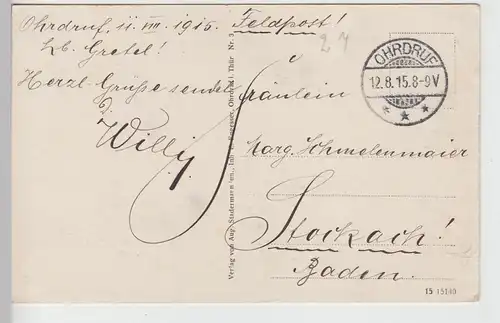 Ohrdruf, 11. VIII. 1915. Feldpost!
Lb. Gretel!
Herzl. Grüße sendet
Willy.
24
OHRDRUF
12.8.15.8-9V
* * *
Fräulein
Marg. Schmelenmaier
Stockach!
Baden.
Verlag von Aug. Stadermann jun., Inh. Ohrdruf i. Thür Nr. 3
15 15140